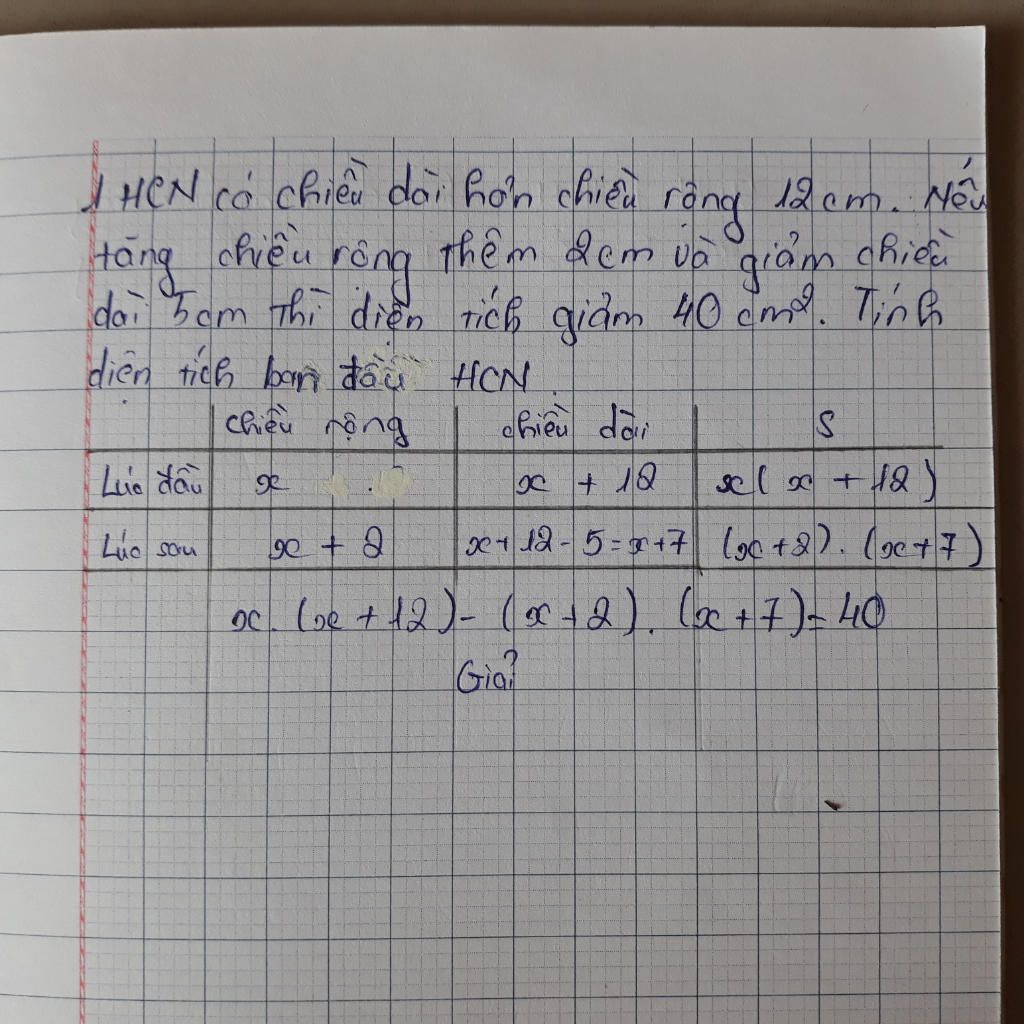 1 HCN có chiều dài hơn chiều rộng 12cm. Nếu
tăng chiều rộng thêm 2cm và giảm chiều
dài 5cm thì diện tích giảm 40 cm². Tính
diện tích ban đầu HCN.
chiều rộng chiều dài S
Lúc đầu x x + 12 x( x + 12 )
Lúc sau x + 2 x+12-5=x+7 (x+2). (x+7)
x. (x + 12) - (x + 2). (x + 7) = 40
Giải